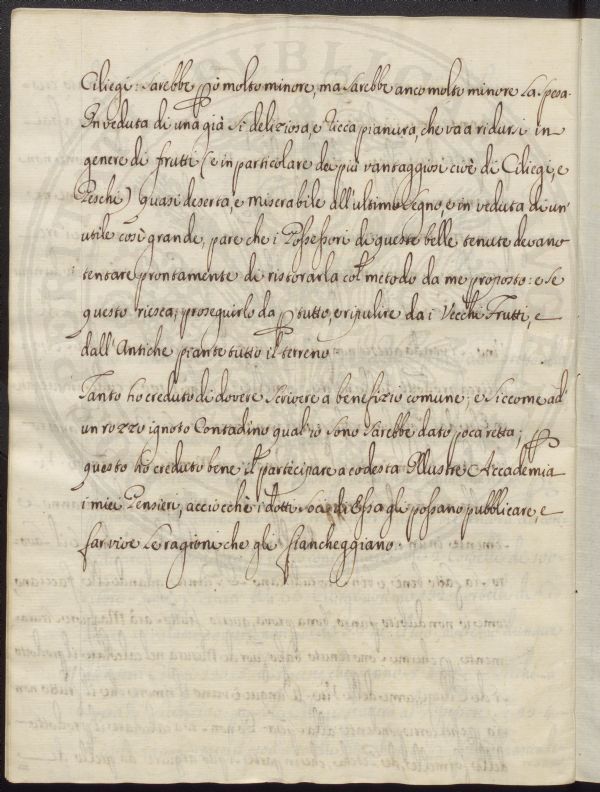 Ciliegi: sarebbe però molto minore, ma sarebbe anco molto minore la spesa.
In veduta di una già sì deliziosa, e ricca pianura, che va a ridursi in
genere di frutti (e in particolare dei più vantaggiosi cioè di Ciliegi, e
Peschi) quasi deserta, e miserabile all'ultimo segno, e in veduta di un'
utile così grande, pare che i Possessori di queste belle tenute devano
tentare prontamente di ristorarla col metodo da me proposto: e se
questo riesca, proseguirlo da per tutto, e ripulire da i Vecchi Frutti, e
dall'Antiche piante tutto il terreno
Tanto ho creduto di dovere scrivere a benefizio comune; e siccome ad
un rozzo ignoto Contadino qual'io sono sarebbe dato poca retta; per
questo ho creduto bene il participare a codesta Illustre Accademia
i miei Pensieri, acciocchè i dotti Soci di Essa gli possano pubblicare, e
far vive le ragioni che gli fiancheggiano.